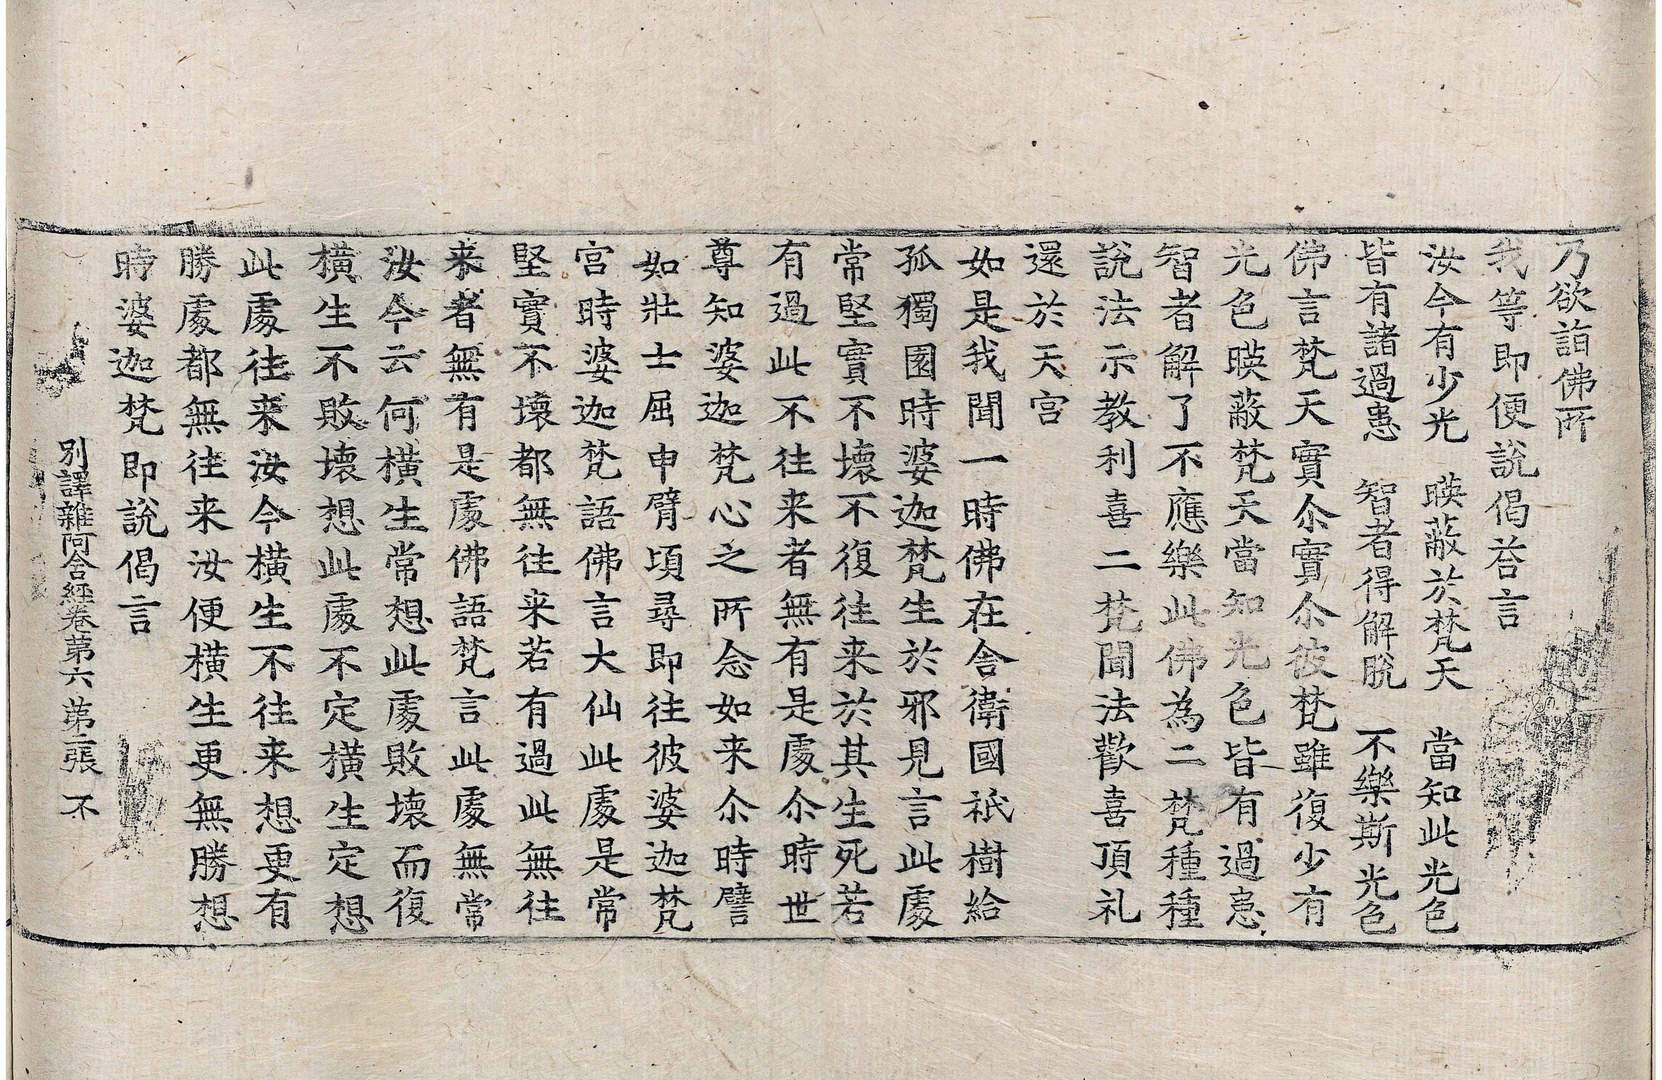 乃欲詣佛所
我等即便說偈荅言
汝今有少光　暎蔽於梵天　當知此光色
皆有諸過患　智者得解脫　不樂斯光色
佛言梵天實尒實尒彼梵雖復少有
光色暎蔽梵天當知光色皆有過患
智者解了不應樂此佛為二梵種種
說法示教利喜二梵聞法歡喜頂礼
還於天宮
如是我聞一時佛在舍衛國祇樹給
孤獨園時婆迦梵生於邪見言此處
常堅實不壞不復往来於其生死若
有過此不往来者無有是處尒時世
尊知婆迦梵心之所念如来尒時譬
如壯士屈申臂頃尋即往彼婆迦梵
宮時婆迦梵語佛言大仙此處是常
堅實不壞都無往来若有過此無往
来者無有是處佛語梵言此處無常
汝今云何橫生常想此處敗壞而復
橫生不敗壞想此處不定橫生定想
此處往来汝今橫生不往来想更有
勝處都無往来汝便橫生更無勝想
時婆迦梵即說偈言
別譯雜阿含經卷第六　第二張　不